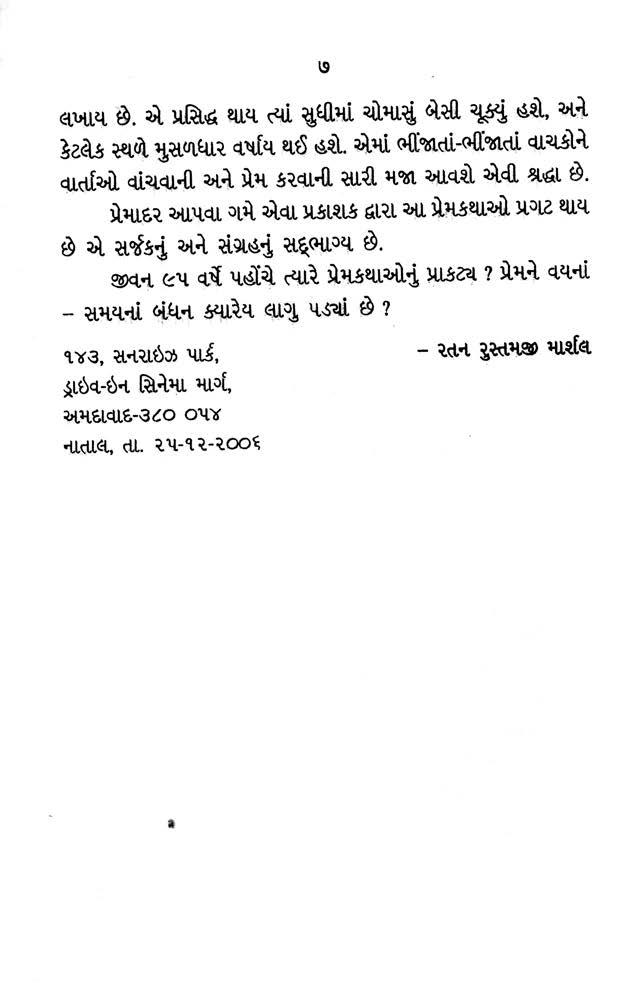 ૭
લખાય છે. એ પ્રસિદ્ધ થાય ત્યાં સુધીમાં ચોમાસું બેસી ચૂક્યું હશે, અને
કેટલેક સ્થળે મુસળધાર વર્ષાય થઈ હશે. એમાં ભીંજાતાં-ભીંજાતાં વાચકોને
વાર્તાઓ વાંચવાની અને પ્રેમ કરવાની સારી મજા આવશે એવી શ્રદ્ધા છે.
પ્રેમાદર આપવા ગમે એવા પ્રકાશક દ્વારા આ પ્રેમકથાઓ પ્રગટ થાય
છે એ સર્જકનું અને સંગ્રહનું સદ્ભાગ્ય છે.
જીવન ૯૫ વર્ષે પહોંચે ત્યારે પ્રેમકથાઓનું પ્રાકટ્ય ? પ્રેમને વયનાં
– સમયનાં બંધન ક્યારેય લાગુ પડ્યાં છે ?
– રતન રુસ્તમજી માર્શલ
૧૪૩, સનરાઇઝ પાર્ક,
ડ્રાઇવ-ઇન સિનેમા માર્ગ,
અમદાવાદ-૩૮૦ ૦૫૪
નાતાલ, તા. ૨૫-૧૨-૨૦૦૬